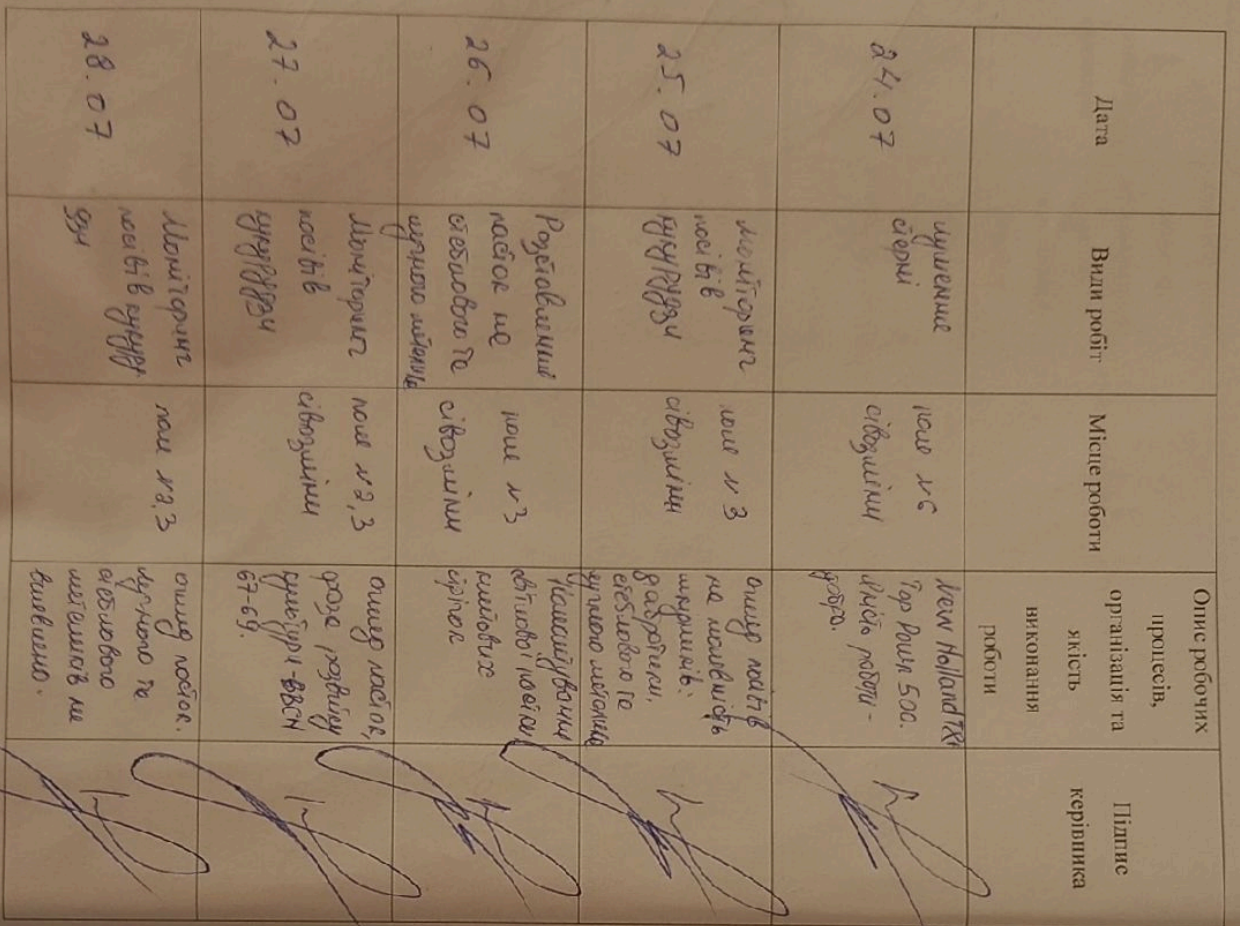 Дата
Види робіт
Місце роботи
Опис робочих
процесів,
організація та
якість
виконання
роботи
Підпис
керівника
24.07
лущення
стерні
поле №6
сівозміни
New Holland T8
Top Down 500.
Якість роботи -
добра.
25.07
Моніторинг
посівів
кукурудзи
поле №3
сівозміни
огляд посівів
на наявність
шкідників:
стеблового та
лучного метелика
26.07
Розставлення
пасток на
стеблового та
лучного метелика
поле №3
сівозміни
світлової
27.07
Моніторинг
посівів
кукурудзи
поле №2,3
сівозміни
огляд пасток,
фаза розвитку
культури ВВСН
67-69.
28.07
Моніторинг
посівів кукуру
дзи
поле №2,3
огляд пасток.
лучного та
стеблового
метеликів не
виявлено.